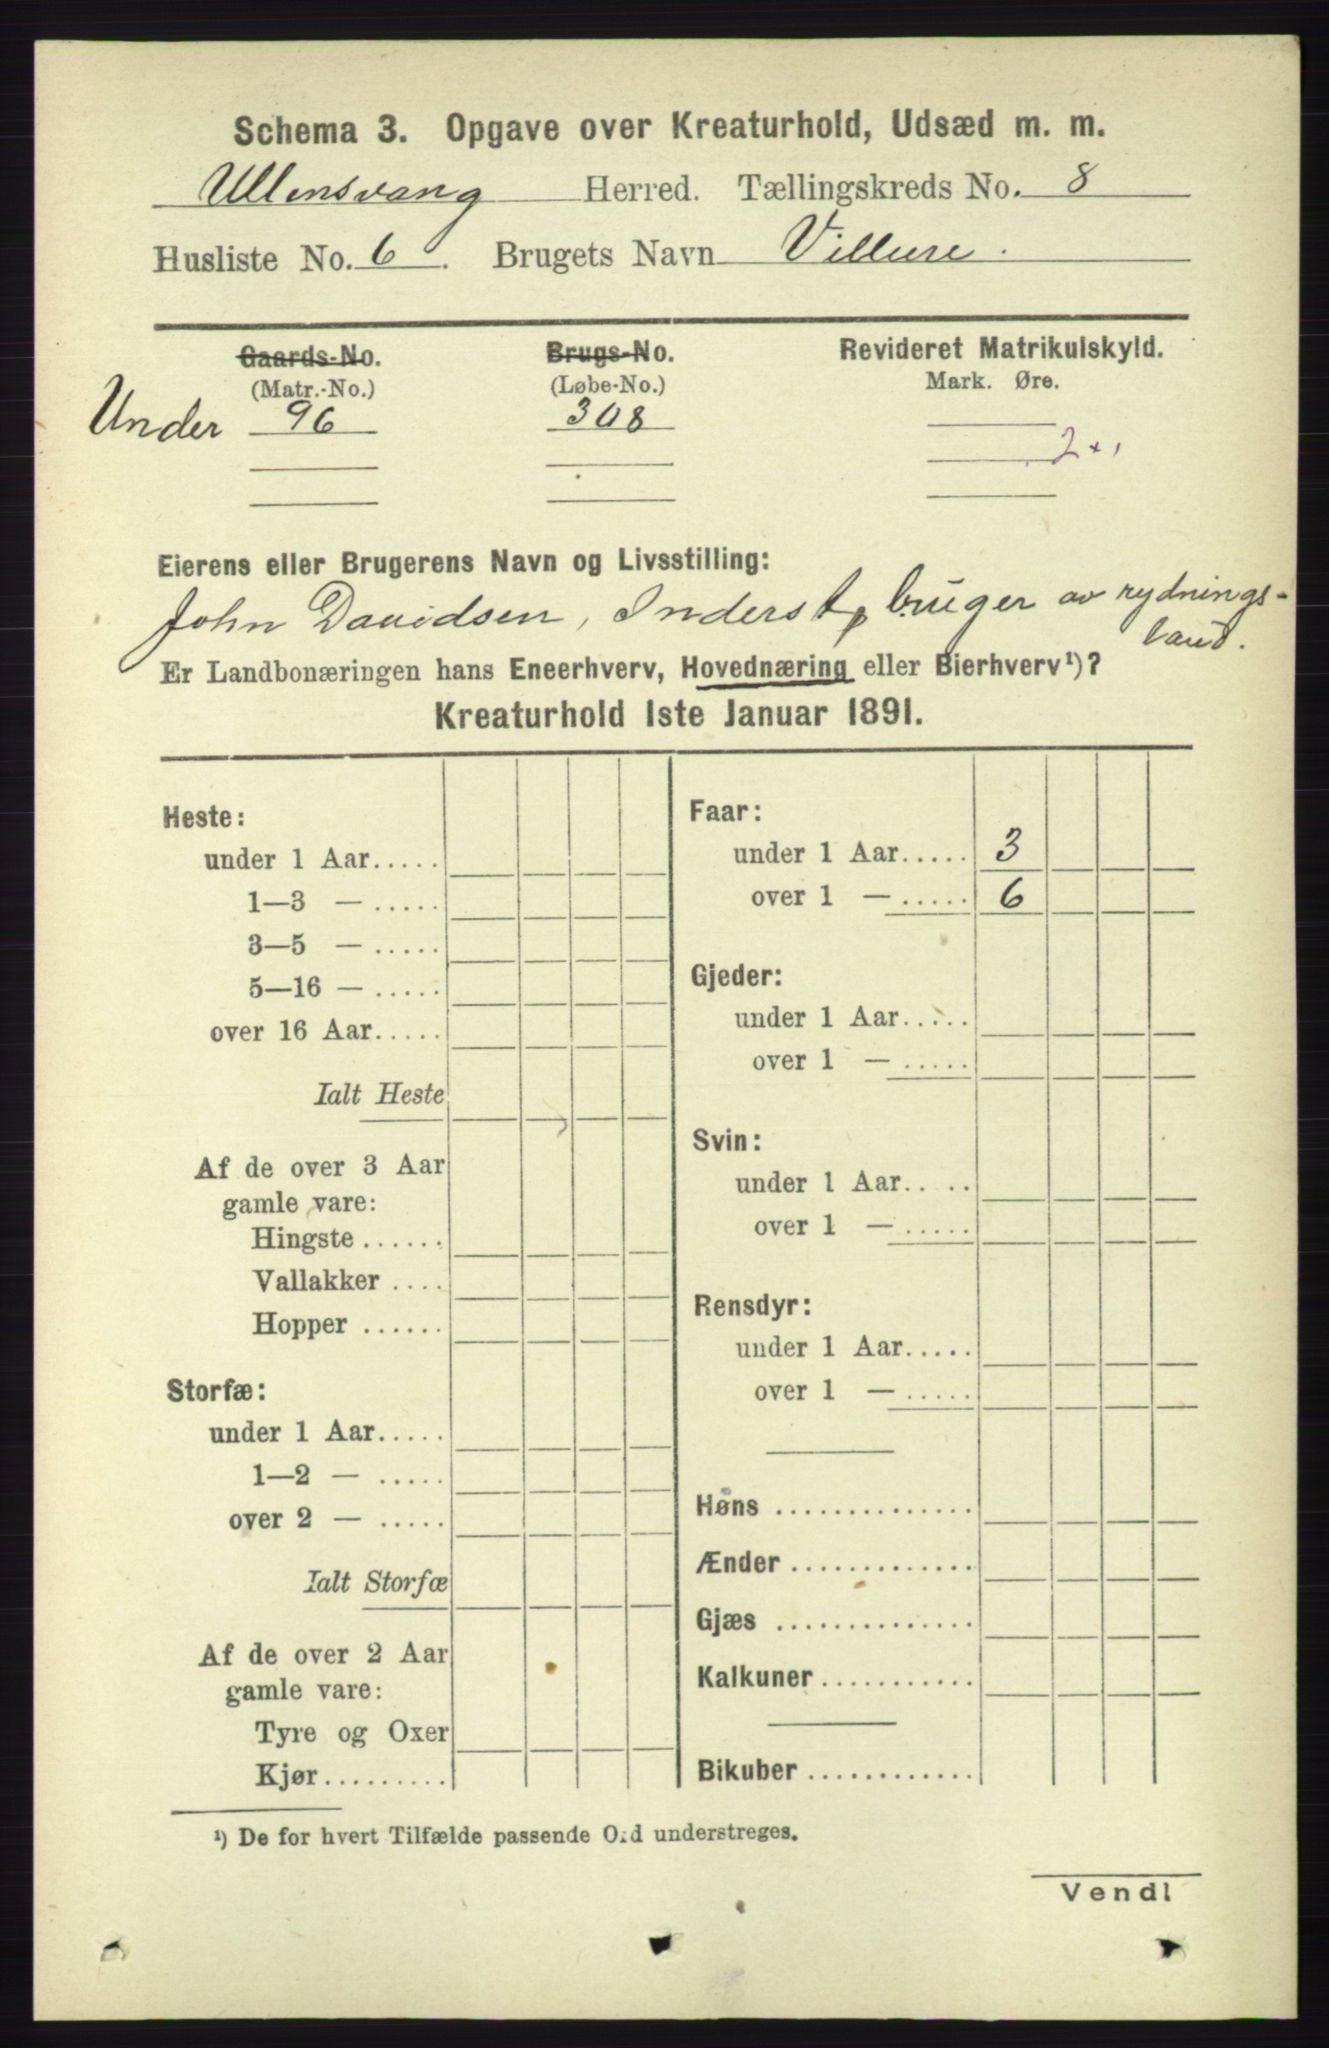 Schema 3. Opgave over Kreaturhold, Udsæd m. m.
Ullensvang Herred. Tællingskreds No. 8
Husliste No. 6. Brugets Navn Villure.
Gaards-No. Brugs-No. Revideret Matrikulskyld.
(Matr.-No.) (Løbe-No.) Mark. Øre.
Under 96 308
2
Eierens eller Brugerens Navn og Livsstilling:
John Davidsen, Inderst, bruger av rydnings-
land.
Er Landbonæringen hans Eneerhverv, Hovednæring eller Bierhverv¹)?
Kreaturhold 1ste Januar 1891.
Heste:
under 1 Aar.....
1—3 — .....
3—5 — .....
5—16 — .....
over 16 Aar.....
Ialt Heste
Af de over 3 Aar
gamle vare:
Hingste ......
Vallakker ....
Hopper ......
Storfæ:
under 1 Aar.....
1—2 — .....
over 2 — .....
Ialt Storfæ
Af de over 2 Aar
gamle vare:
Tyre og Oxer
Kjør.........
Faar:
under 1 Aar..... 3
over 1 — ..... 6
Gjeder:
under 1 Aar.....
over 1 — .....
Svin:
under 1 Aar.....
over 1 — .....
Rensdyr:
under 1 Aar.....
over 1 — .....
Høns ..............
Ænder .............
Gjæs ..............
Kalkuner ...........
Bikuber ............
¹) De for hvert Tilfælde passende Ord understreges.
Vend!